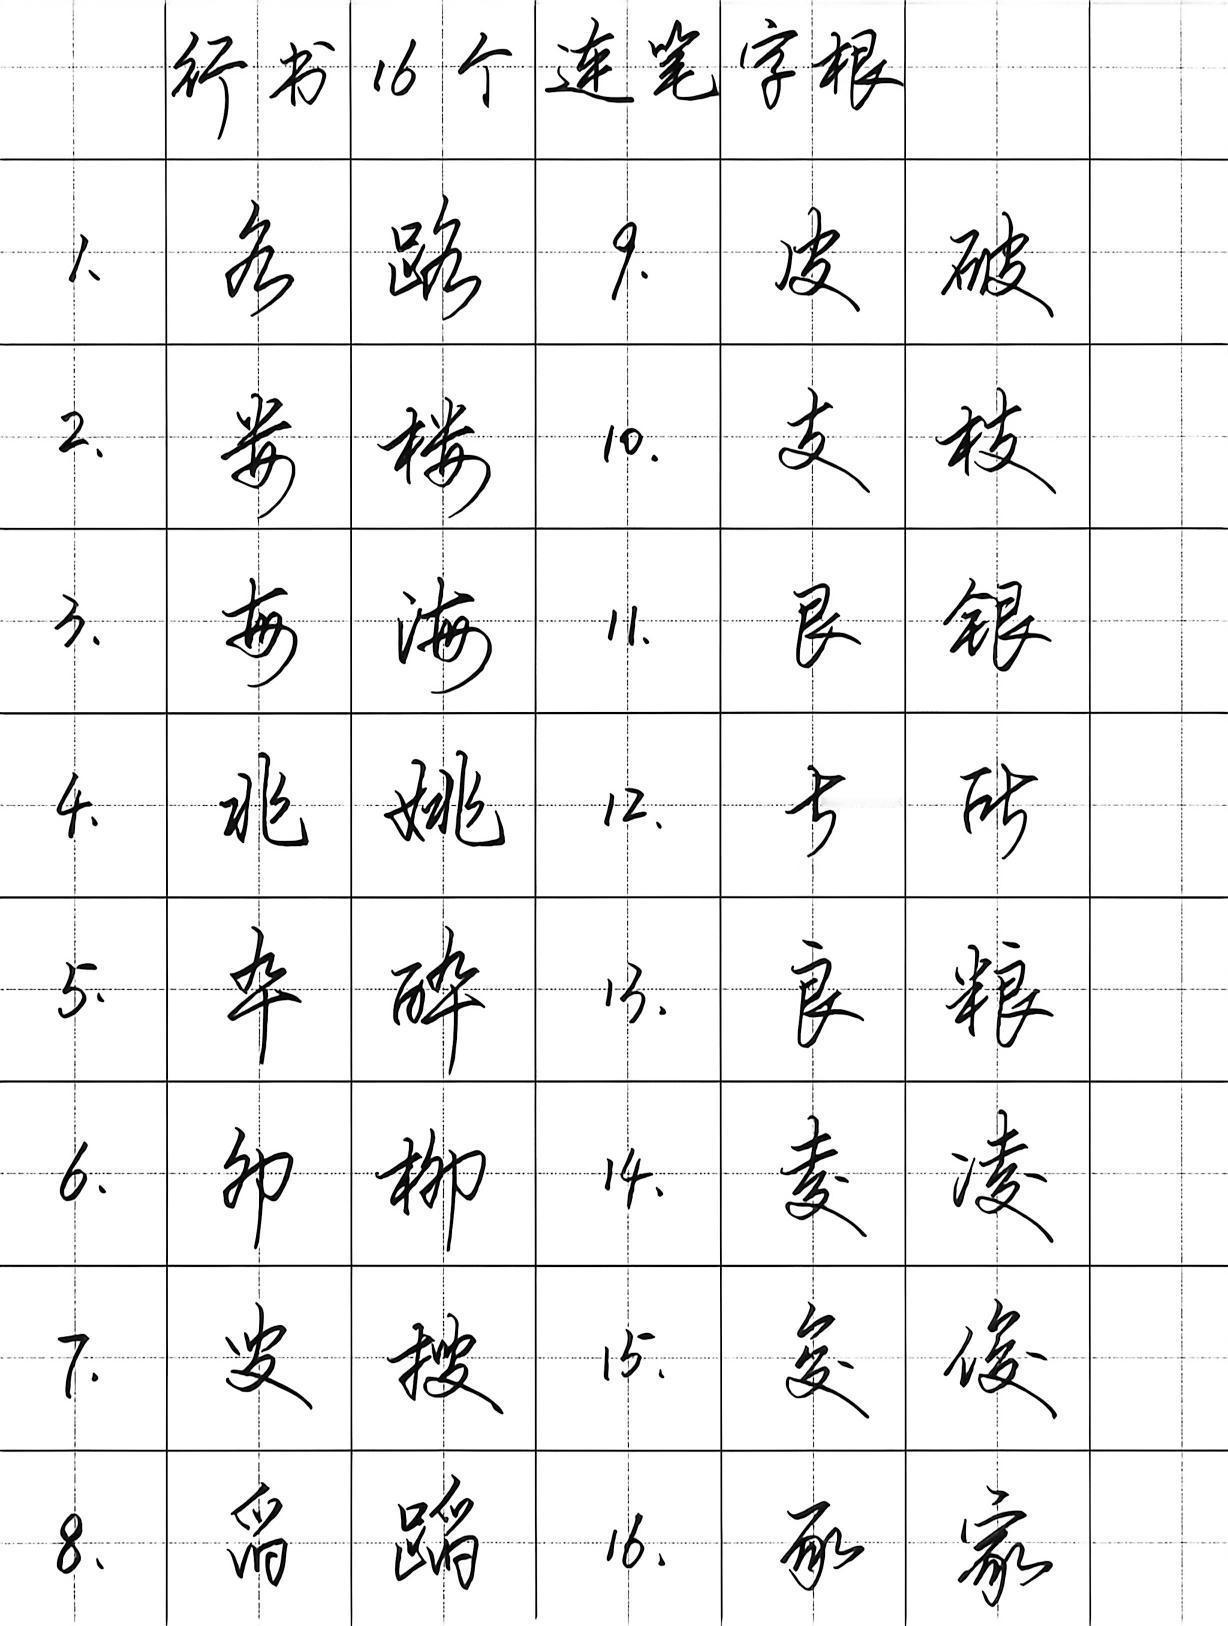 行书16个连笔字根
1、 各 路 9. 皮 破
2、 娄 楼 10. 支 枝
3、 每 海 11. 艮 银
4、 兆 姚 12、 斤 所
5、 卒 醉 13、 良 粮
6、 卯 柳 14、 夌 凌
7、 叟 搜 15、 夋 俊
8、 舀 蹈 16、 豖 家